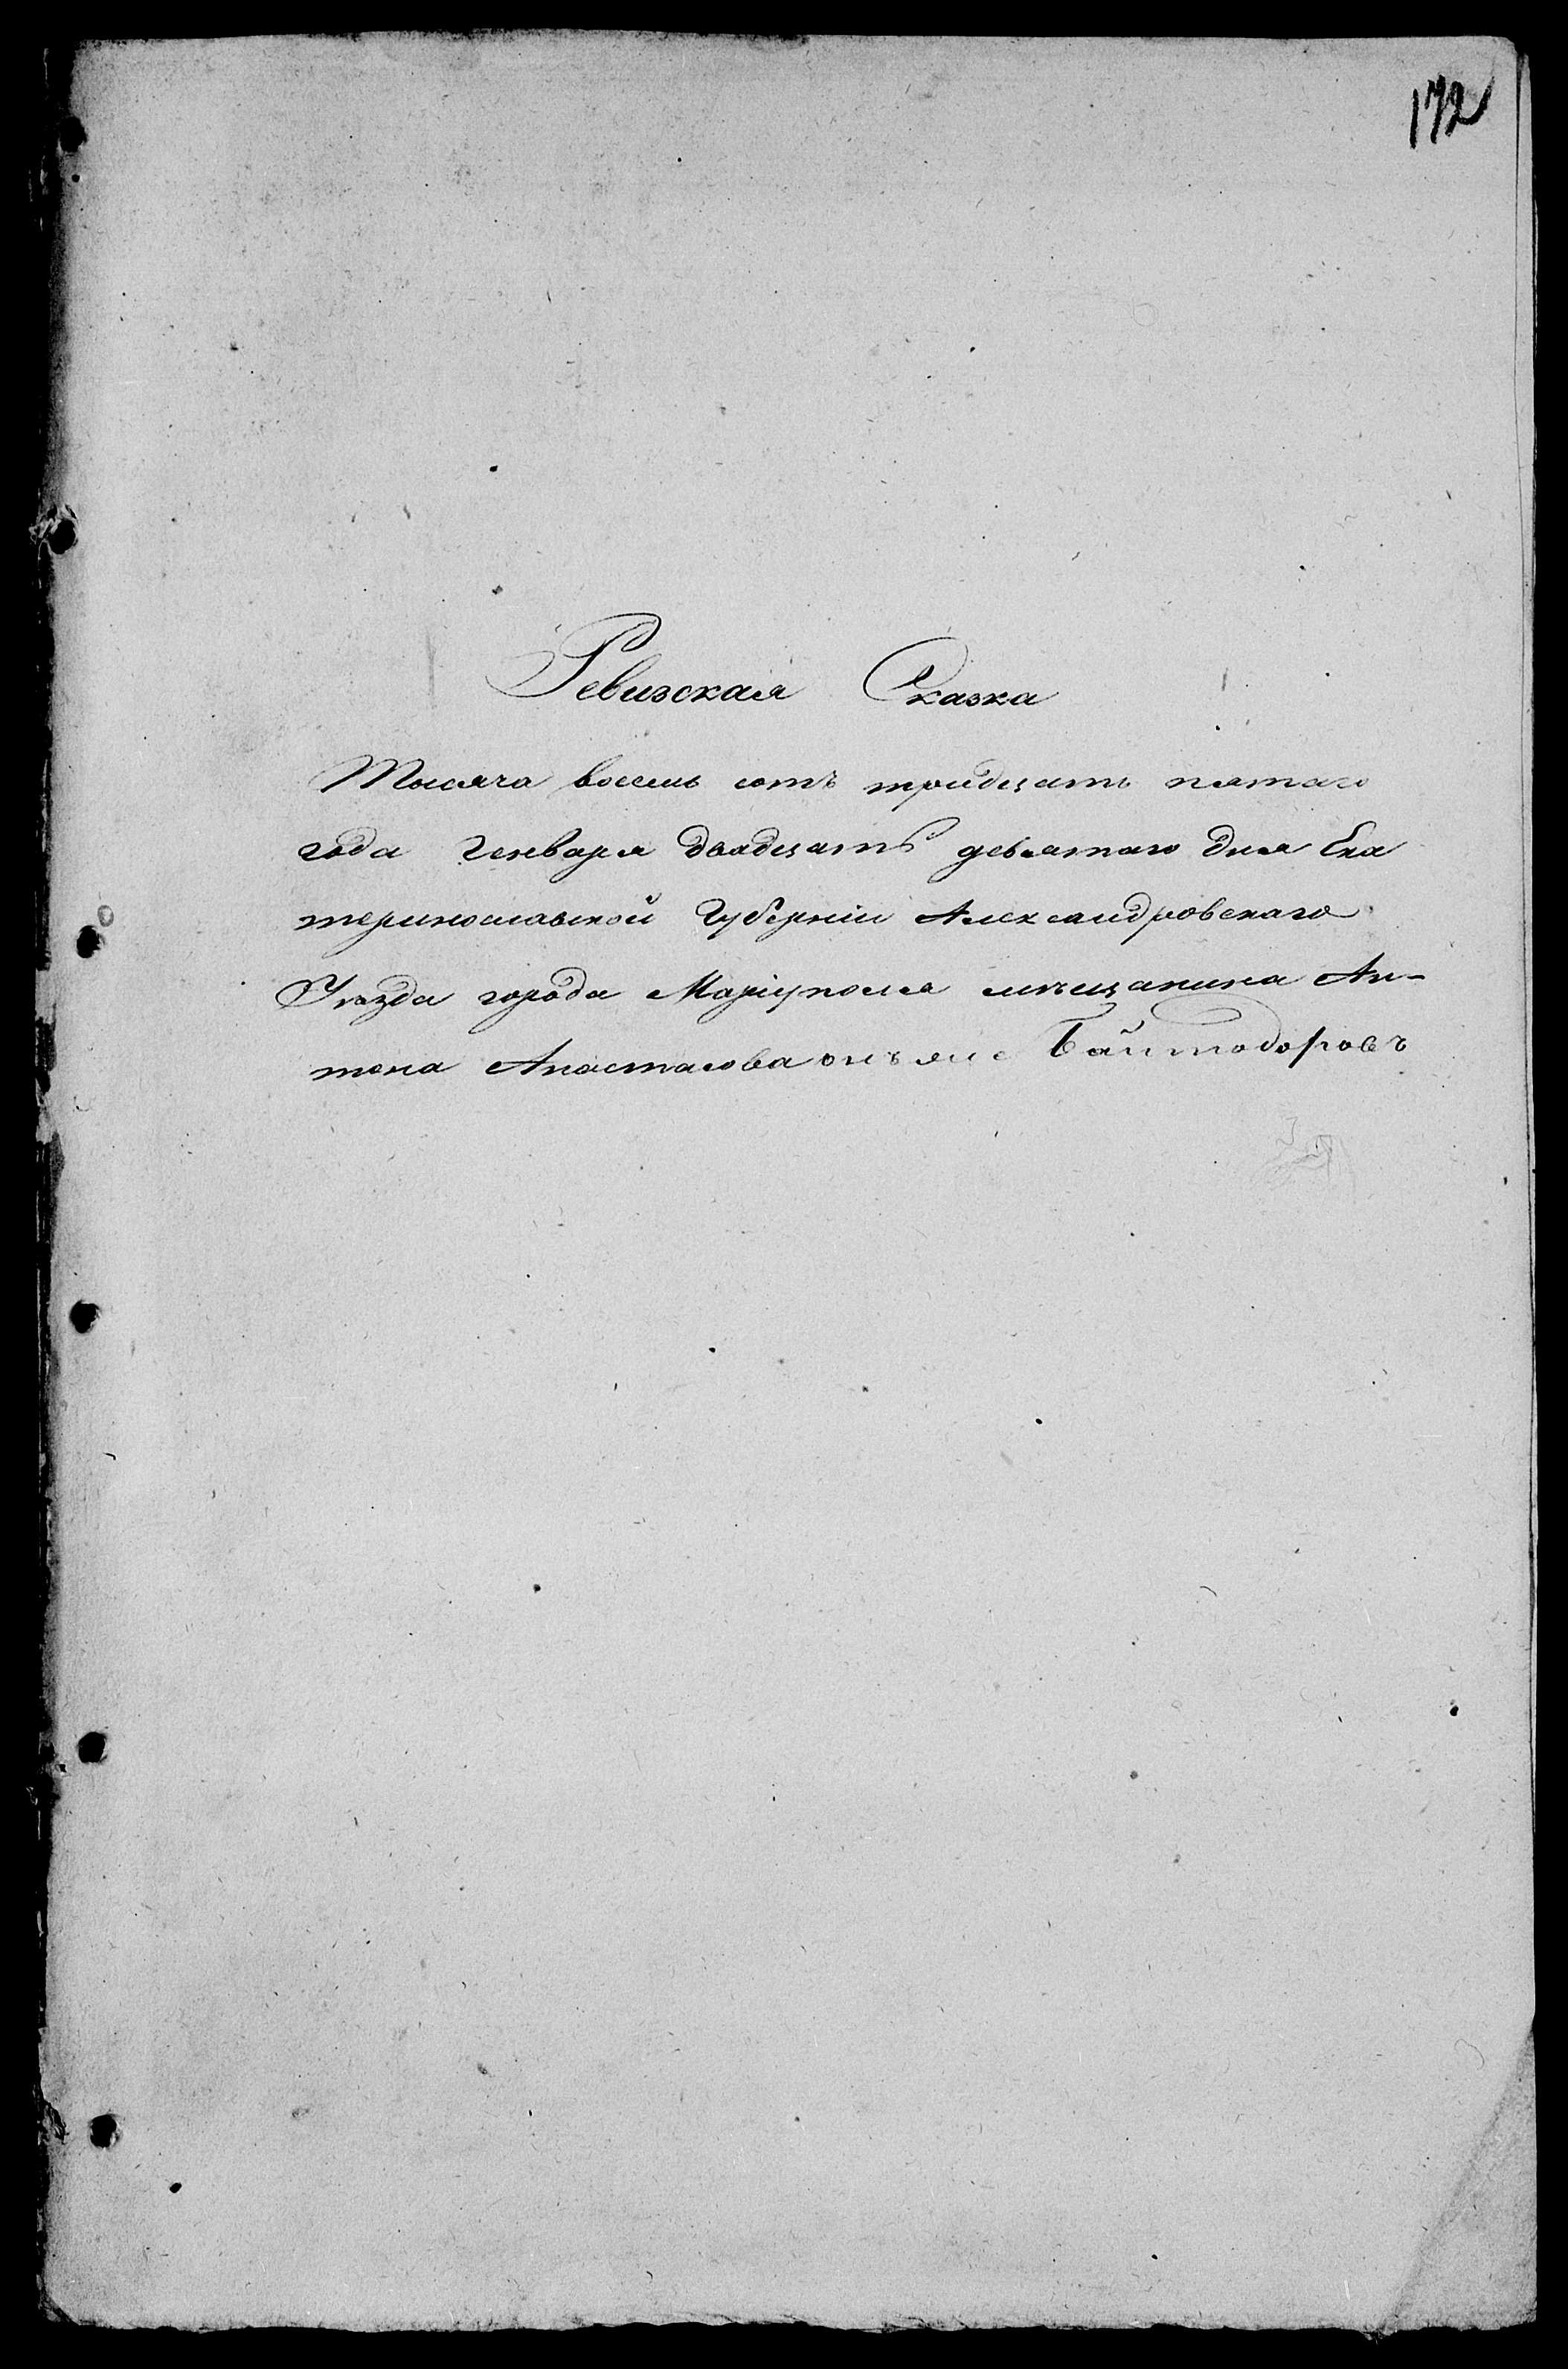 172
Ревизская Сказка
Тысяча восемь сотъ тридцать пятаго
года Генваря двадцать девятаго дня Ека
теринославской Губерніи Александровскаго
Уѣзда города Маріуполя мѣщанина Ан-
тона Анастасова онъ же Байтодоровъ